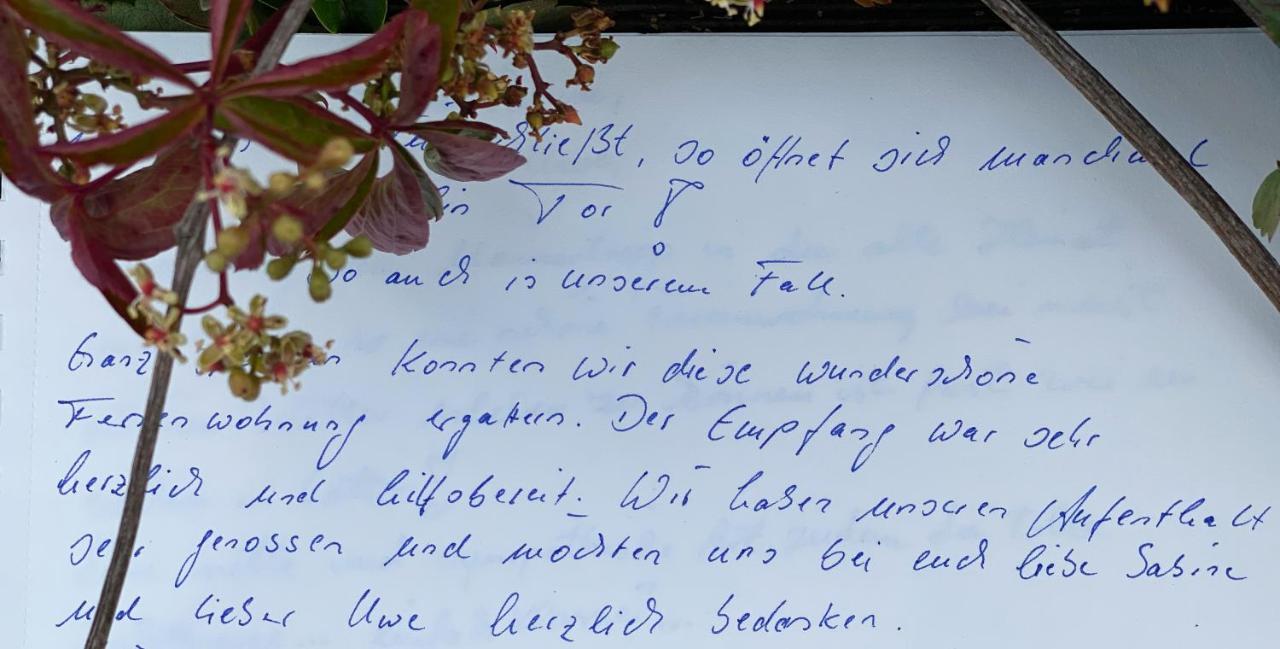 schließt, so öffnet sich manchmal
ein Tor!
So auch in unserem Fall.
Ganz konnten wir diese wunderschöne
Ferienwohnung ergattern. Der Empfang war sehr
herzlich und hilfsbereit. Wir haben unseren Aufenthalt
sehr genossen und möchten uns bei euch liebe Sabine
und lieber Uwe herzlich bedanken.